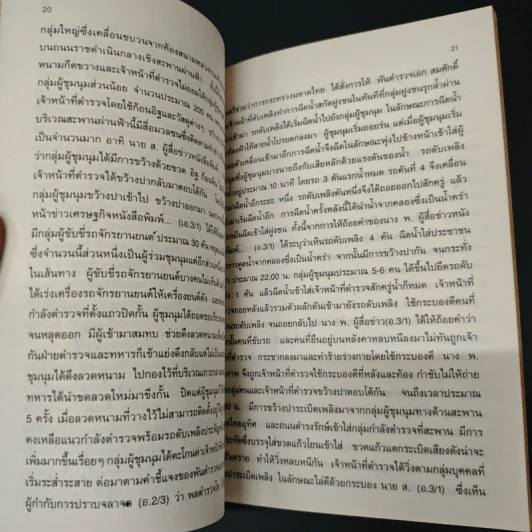 20
กลุ่มใหญ่ซึ่งเคลื่อนขบวนจากท้องสนามหลวง
บนถนนราชดำเนินกลางเชิงสะพานผ่านฟ้า
หนามกีดขวางและเจ้าหน้าที่ตำรวจไม่ยอมให้
กลุ่มผู้ชุมนุมส่วนน้อย จำนวนประมาณ 200 คน
เจ้าหน้าที่ตำรวจโดยใช้ก้อนอิฐและวัสดุต่างๆ
บริเวณสะพานผ่านฟ้านี้มีสื่อมวลชนซึ่งติดตาม
เป็นจำนวนมาก อาทิ นาย ส. ผู้สื่อข่าวหนังสือพิมพ์
ว่ากลุ่มผู้ชุมนุมได้มีการขว้างด้วยขวด อิฐ ก้อนหิน
เจ้าหน้าที่ตำรวจได้ขว้างปากลับมาตอบโต้กัน
กลุ่มผู้ชุมนุมขว้างปาเข้าไป ขว้างปาออกมา
หน้าข่าวเศรษฐกิจหนังสือพิมพ์... (อ.3/1)
มีกลุ่มผู้ขับขี่รถจักรยานยนต์ ประมาณ 30 คัน
ซึ่งจำนวนนี้ส่วนหนึ่งเป็นผู้ร่วมชุมนุมแต่อีกส่วน
ในเส้นทาง ผู้ขับขี่รถจักรยานยนต์บางคนไม่
ได้เร่งเครื่องรถจักรยานยนต์ให้เครื่องยนต์ดัง
กำลังตำรวจที่ตั้งแถวปิดกั้น ผู้ชุมนุมได้
จนหลุดออก มีผู้เข้ามาสมทบ ช่วยดึงลวดหนาม
กันฝ่ายตำรวจและทหารก็เข้าแย่งดึงกลับ
ชุมนุมได้ดึงลวดหนาม ไปกองไว้ที่บริเวณ
ทหารได้นำขดลวดใหม่มาขึงกั้น ปิดแต่ผู้ชุมนุม
5 ครั้ง เมื่อลวดหนามที่วางไว้ไม่สามารถ
คงเหลือแนวกำลังตำรวจพร้อมรถดับเพลิง
เพิ่มมากขึ้นเรื่อยๆ กลุ่มผู้ชุมนุมได้ตะโกนด่า
เริ่มระส่ำระสาย ต่อมาตามคำชี้แจงของ
ผู้กำกับการปราบจลาจล (อ.2/3) ว่า พลตำรวจ
21
ช่วยว่าการกระทรวงมหาดไทย ได้สั่งการให้ พันตำรวจเอก สมศักดิ์
เจ้าหน้าที่ดับเพลิงทำการฉีดน้ำสกัดฝูงชนในทันทีที่กลุ่มฝูงชนรุกล้ำผ่าน
เข้ามา รถดับเพลิงได้เริ่มฉีดน้ำไปยังกลุ่มผู้ชุมนุม ในลักษณะการฉีดน้ำ
ฟ้าให้สายน้ำโปรยตกลงมา ผู้ชุมนุมเริ่มถอยร่น แต่เมื่อผู้ชุมนุมเริ่ม
ตัวเคลื่อนเข้ามาอีกการฉีดน้ำจึงฉีดในลักษณะพุ่งไปข้างหน้าเข้าใส่ผู้
ผู้ชุมนุมบางนายถึงกับเสียหลักด้วยแรงดันของน้ำ รถดับเพลิง
อยู่ประมาณ 10 นาที โดยรถ 3 คันแรกน้ำหมด รถคันที่ 4 จึงเคลื่อน
ฉีดน้ำอีกระยะ หนึ่ง รถดับเพลิงคันหนึ่งจึงได้ถอยออกไปสักครู่ แล้ว
มาเริ่มฉีดน้ำอีก การฉีดน้ำครั้งหลังนี้ได้นำน้ำจากคลองซึ่งเป็นน้ำคร่ำ
เข้าใส่ฝูงชน ทั้งนี้จากการให้ถ้อยคำของนาย พ. ผู้สื่อข่าวหนัง
(อ.3/1) ได้ระบุว่าเห็นรถดับเพลิง 4 คัน ฉีดน้ำใส่ประชาชน
น้ำจากคลองซึ่งเป็นน้ำคร่ำ จากนั้นมีการขว้างปากัน จนกระทั่ง
ประมาณ 22.00 น. กลุ่มผู้ชุมนุมประมาณ 5-6 คน ได้ขึ้นไปยึดรถดับ
1 คัน แล้วฉีดน้ำเข้าใส่เจ้าหน้าที่ตำรวจสักครู่น้ำก็หมด เจ้าหน้าที่
ถอยหลังแล้วรวมตัวผลักดันเข้ามายังรถดับเพลิง ใช้กระบองตีคนที่
รถดับเพลิง จนถอยกลับไป นาง พ. ผู้สื่อข่าว(อ.3/1) ได้ให้ถ้อยคำว่า
คนที่ขับรถ และคนที่ยืนอยู่บนหลังคาหลบหนีลงมาไม่ทันถูกเจ้า
ตำรวจ กระชากลงมาและทำร้ายร่างกายโดยใช้กระบองตี นาง พ.
จึงถูกเจ้าหน้าที่ตำรวจใช้กระบองตีที่หลังและท้อง กำชับไม่ให้ถ่าย
และเจ้าหน้าที่ตำรวจขว้างปาตอบโต้กัน จนถึงเวลาประมาณ
น. มีการขว้างปาระเบิดเพลิงมาจากกลุ่มผู้ชุมนุมทางด้านสะพาน
และถนนดำรงรักษ์เข้าใส่กลุ่มกำลังตำรวจที่สะพาน มีการ
ทัดซึ่งบรรจุใส่ขวดแก้วโยนเข้าใส่ ขวดแก้วแตกระเบิดเสียงดังน่าจะ
อันตราย ทำให้วิ่งหลบหนีกัน เจ้าหน้าที่ตำรวจได้วิ่งตามกลุ่มบุคคลที่
ปาระเบิดเพลิง ในลักษณะไล่ตีด้วยกระบอง นาย ส. (อ.3/1) ซึ่งเห็น